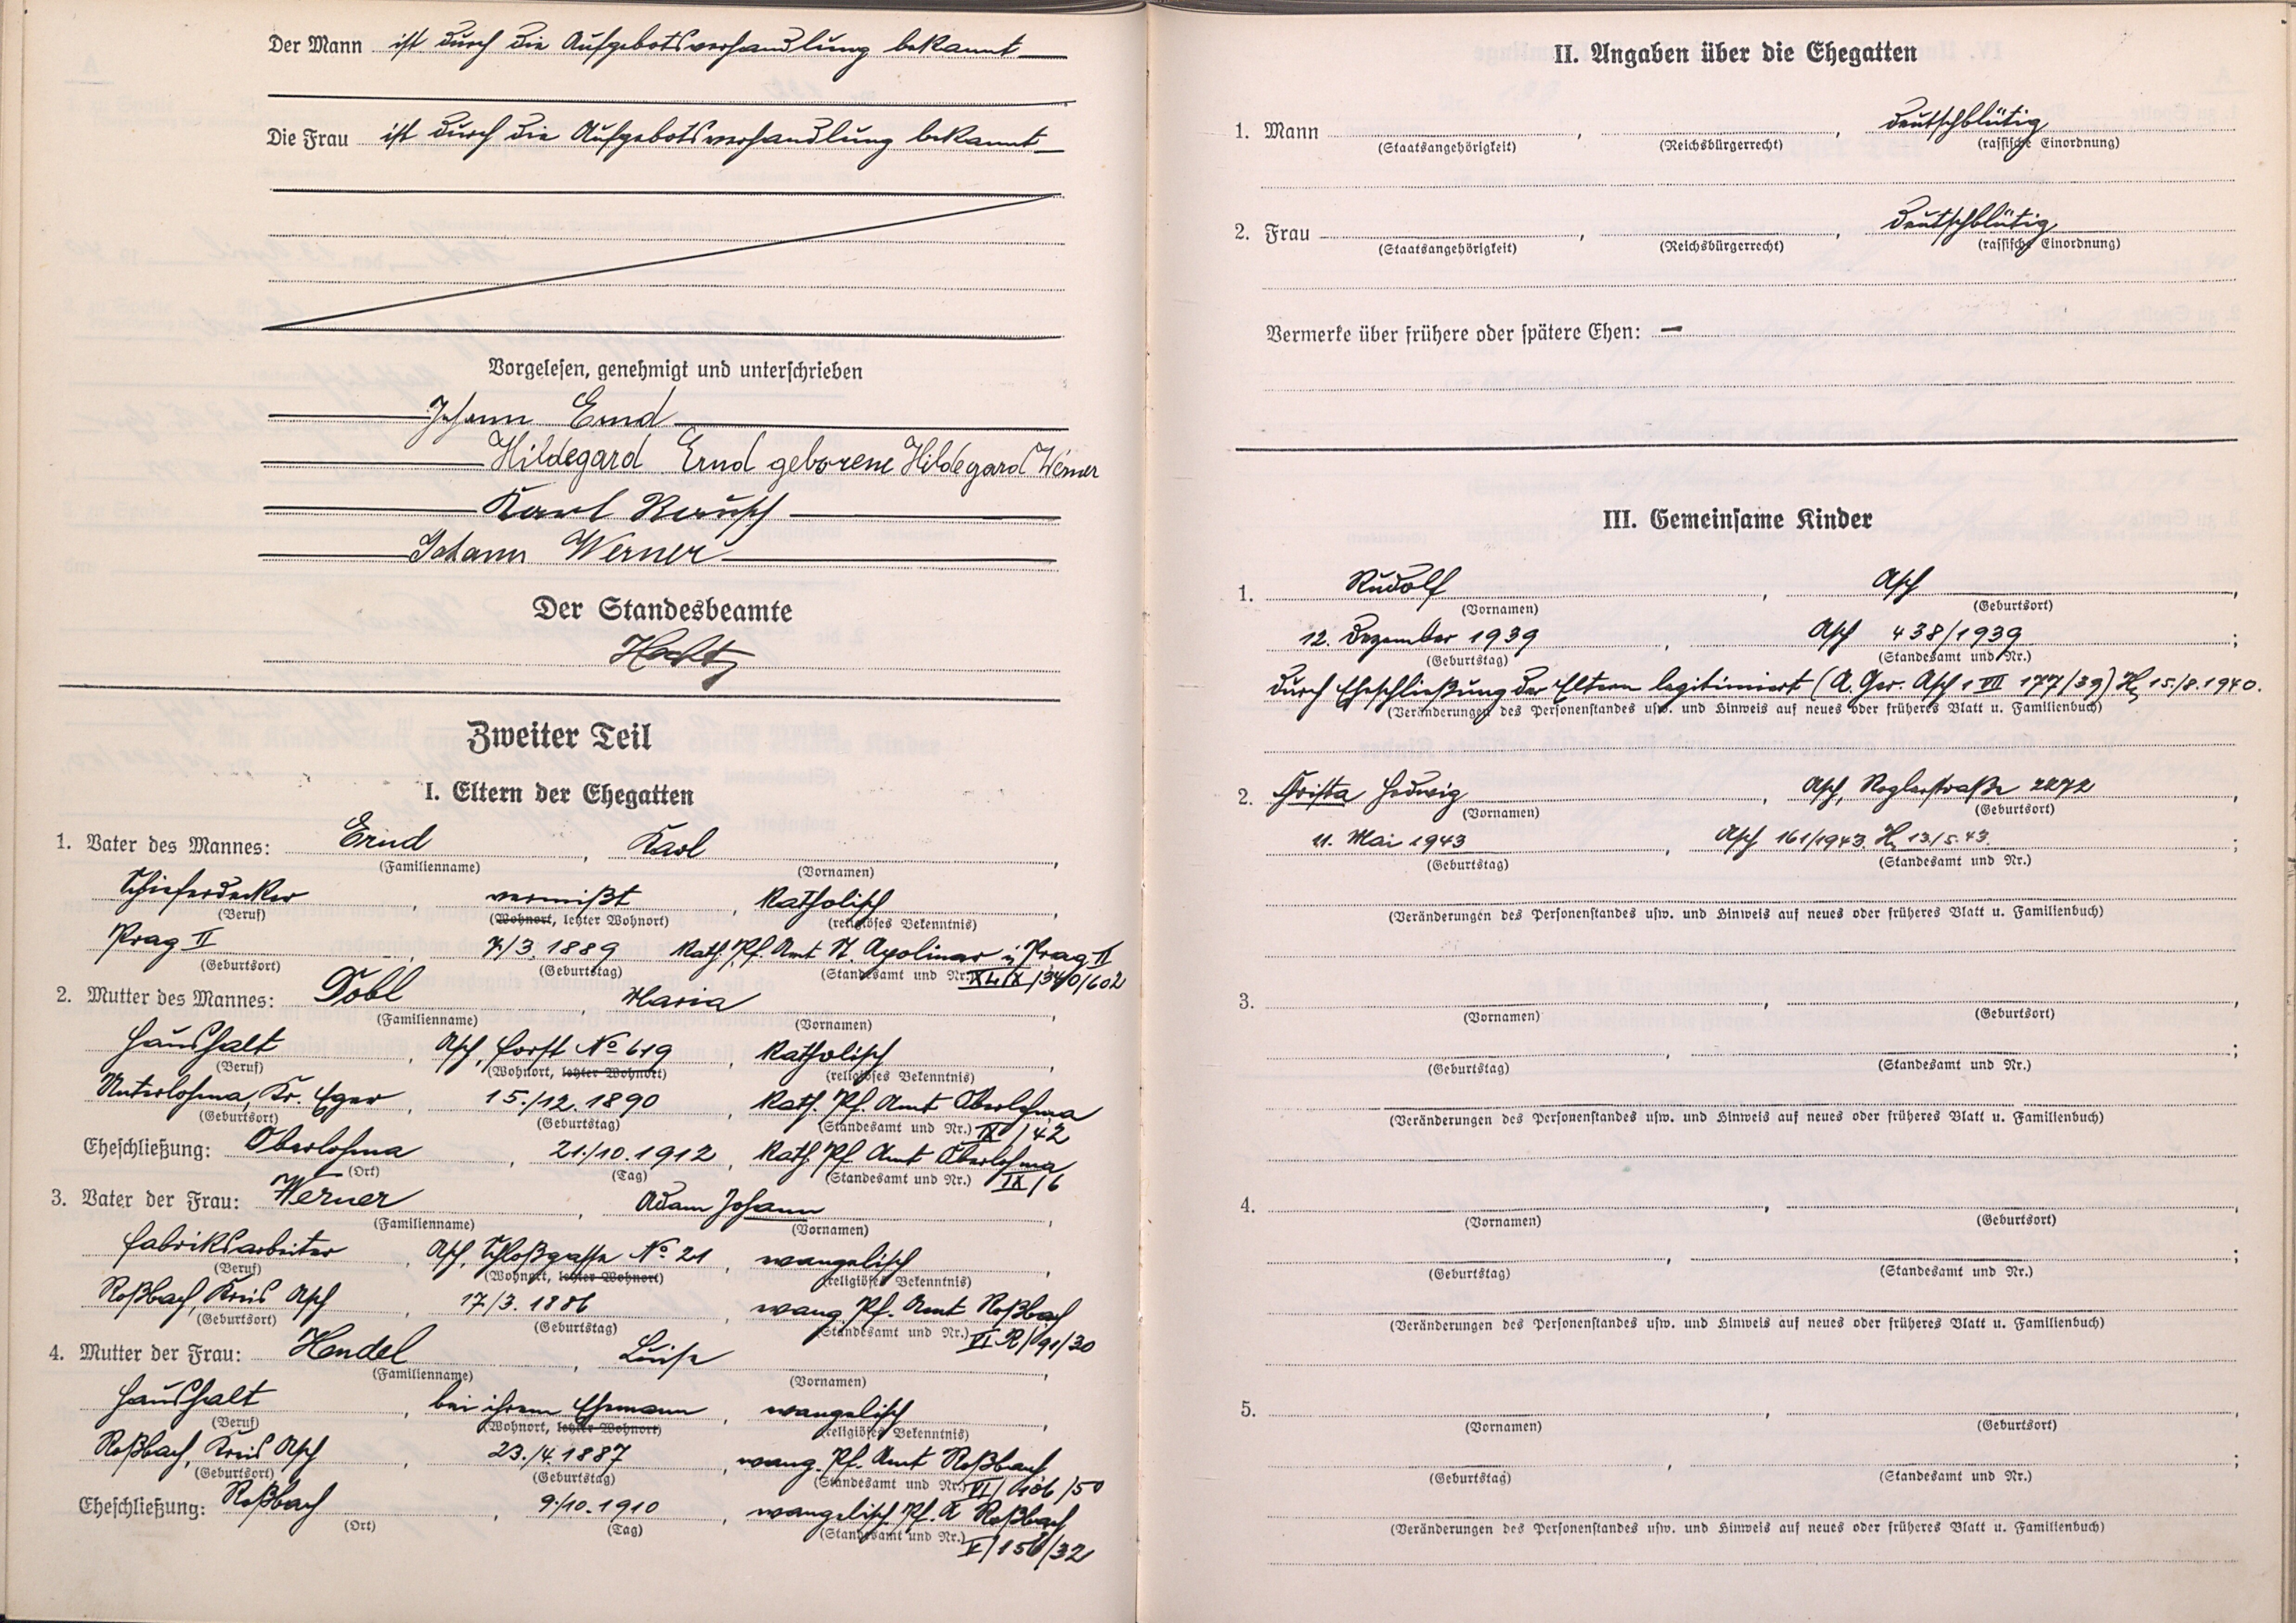 Der Mann ist durch die Aufgebotsverhandlung bekannt
Die Frau ist durch die Aufgebotsverhandlung bekannt
Vorgelesen, genehmigt und unterschrieben
Johann Ernd
Hildegard Ernd geborene Hildegard Werner
Karl
Johann Werner
Der Standesbeamte
Zweiter Teil
I. Eltern der Ehegatten
1. Vater des Mannes: Ernd, Karl,
(Familienname) (Vornamen)
Schieferdecker, vermißt, katholisch,
(Beruf) (Wohnort, letzter Wohnort) (religiöses Bekenntnis)
Prag II, 7./3. 1889 Kath. Pf. Amt St. Apolinar i. Prag II
(Geburtsort) (Geburtstag) (Standesamt und Nr.) XLIX/340/602
2. Mutter des Mannes: Döbl, Maria,
(Familienname) (Vornamen)
Haushalt, Asch, Forst No 619, katholisch,
(Beruf) (Wohnort, letzter Wohnort) (religiöses Bekenntnis)
Unterlohma, Kr. Eger, 15./12. 1890, Kath. Pf. Amt Oberlohma
(Geburtsort) (Geburtstag) (Standesamt und Nr.) IX/42
Eheschließung: Oberlohma, 21./10. 1912, Kath. Pf. Amt Oberlohma
(Ort) (Tag) (Standesamt und Nr.) IX/6
3. Vater der Frau: Werner, Adam Johann,
(Familienname) (Vornamen)
Fabriksarbeiter, Asch, Schloßgasse No. 21, evangelisch,
(Beruf) (Wohnort, letzter Wohnort) (religiöses Bekenntnis)
Roßbach, Kreis Asch, 17./3. 1886, evang. Pf. Amt Roßbach
(Geburtsort) (Geburtstag) (Standesamt und Nr.) VI R/91/30
4. Mutter der Frau: Hendel, Luise,
(Familienname) (Vornamen)
Haushalt, bei ihrem Ehemann, evangelisch,
(Beruf) (Wohnort, letzter Wohnort) (religiöses Bekenntnis)
Roßbach, Kreis Asch, 23./4. 1887, evang. Pf. Amt Roßbach
(Geburtsort) (Geburtstag) (Standesamt und Nr.) VI/ /50
Eheschließung: Roßbach, 9./10. 1910, evangelisch. Pf. A Roßbach
(Ort) (Tag) (Standesamt und Nr.) V/156/32
II. Angaben über die Ehegatten
1. Mann, , deutschblütig
(Staatsangehörigkeit) (Reichsbürgerrecht) (rassische Einordnung)
2. Frau, , deutschblütig
(Staatsangehörigkeit) (Reichsbürgerrecht) (rassische Einordnung)
Vermerke über frühere oder spätere Ehen: —
III. Gemeinsame Kinder
1. Rudolf, Asch,
(Vornamen) (Geburtsort)
12. Dezember 1939, Asch 438/1939;
(Geburtstag) (Standesamt und Nr.)
durch Eheschließung der Eltern legitimiert (A. Ger. Asch 1 VII 177/39) Hz 15./8. 1940.
(Veränderungen des Personenstandes usw. und Hinweis auf neues oder früheres Blatt u. Familienbuch)
2. Christa Hedwig, Asch, Roglerstraße 2272,
(Vornamen) (Geburtsort)
11. Mai 1943, Asch 161/1943. Hz 13./5. 43.;
(Geburtstag) (Standesamt und Nr.)
(Veränderungen des Personenstandes usw. und Hinweis auf neues oder früheres Blatt u. Familienbuch)
3. , ,
(Vornamen) (Geburtsort)
, ;
(Geburtstag) (Standesamt und Nr.)
(Veränderungen des Personenstandes usw. und Hinweis auf neues oder früheres Blatt u. Familienbuch)
4. , ,
(Vornamen) (Geburtsort)
, ;
(Geburtstag) (Standesamt und Nr.)
(Veränderungen des Personenstandes usw. und Hinweis auf neues oder früheres Blatt u. Familienbuch)
5. , ,
(Vornamen) (Geburtsort)
, ;
(Geburtstag) (Standesamt und Nr.)
(Veränderungen des Personenstandes usw. und Hinweis auf neues oder früheres Blatt u. Familienbuch)